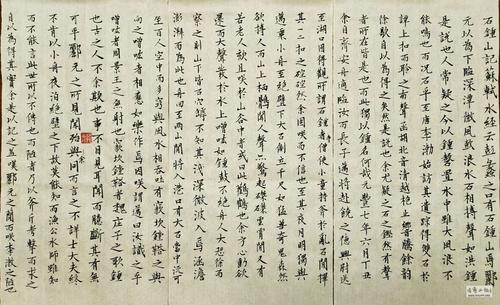 石鐘山記蘇軾水經云彭蠡之口有石鐘山焉酈
元以為下臨深潭微風鼓浪水石相搏聲如洪鐘
是說也人常疑之今以鐘磬置水中雖大風浪不
能鳴也而況石乎至唐李渤始訪其遺蹤得雙石於
潭上扣而聆之南聲函胡北音清越桴止響騰餘韻
徐歇自以為得之矣然是說也余尤疑之石之鏗然有聲
者所在皆是也而此獨以鐘名何哉元豐七年六月丁丑
余自齊安舟適臨汝而長子邁將赴饒之德興尉送
至湖口因得觀所謂石鐘者寺僧使小童持斧於亂石間擇
其一二扣之硿硿焉余固笑而不信也至其夜月明獨與
邁乘小舟至絕壁下大石側立千尺如猛獸奇鬼森然
欲搏人而山上栖鶻聞人聲亦驚起磔磔雲霄間又有
若老人欬且笑於山谷中者或曰此鸛鶴也余方心動欲
還而大聲發於水上噌吰如鐘鼓不絕舟人大恐徐而
察之則山下皆石穴罅不知其淺深微波入焉涵澹
澎湃而為此也舟回至兩山間將入港口有大石當中流可
坐百人空中而多竅與風水相吞吐有窾坎鏜鞳之聲與
向之噌吰者相應如樂作焉因笑謂邁曰汝識之乎
噌吰者周景王之無射也窾坎鏜鞳者魏莊子之歌鐘
也古之人不余欺也事不目見耳聞而臆斷其有無
可乎酈元之所見聞殆與余同而言之不詳士大夫終
不肯以小舟夜泊絕壁之下故莫能知而漁工水師雖知
而不能言此世所以不傳也而陋者乃以斧斤考擊而求之
自以為得其實余是以記之蓋嘆酈元之簡而笑李渤之陋也